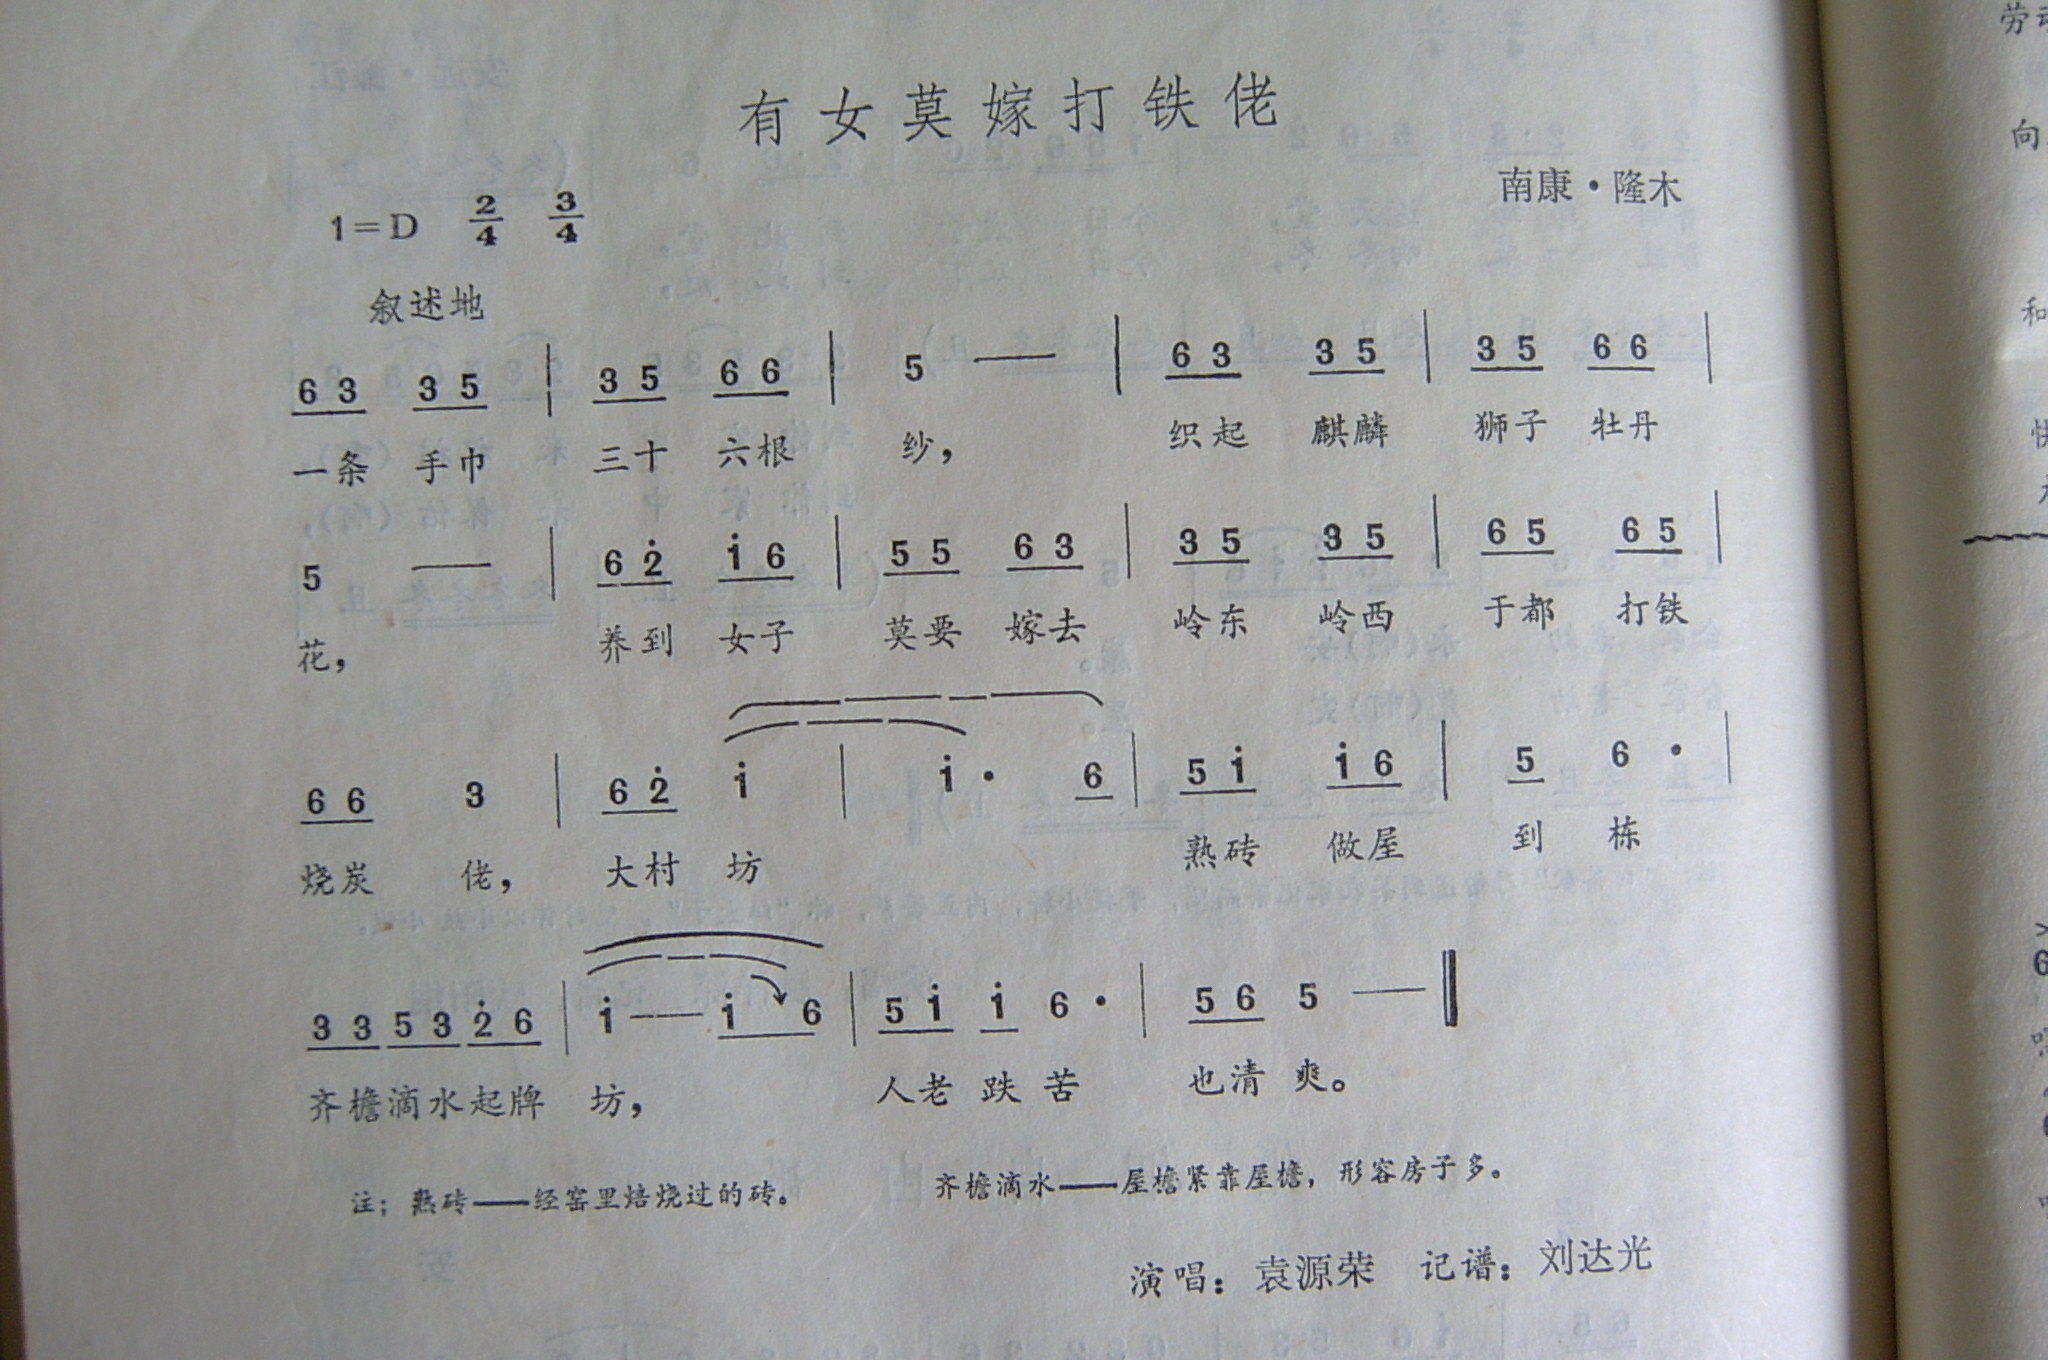 有女莫嫁打铁佬
南康·隆木
1=D 2/4 3/4
叙述地
6 3 3 5 | 3 5 6 6 | 5 — | 6 3 3 5 | 3 5 6 6 |
一条 手巾 三十 六根 纱， 织起 麒麟 狮子 牡丹
5 — | 6 2̇ 1̇ 6 | 5 5 6 3 | 3 5 3 5 | 6 5 6 5 |
花， 养到 女子 莫要 嫁去 岭东 岭西 于都 打铁
6 6 3 | 6 2̇ 1̇ | 1̇· 6 | 5 1̇ 1̇ 6 | 5 6· |
烧炭 佬， 大村 坊 熟砖 做屋 到 栋
3 3 5 3 2̇ 6 | 1̇ — 1̇ 6 | 5 1̇ 1̇ 6· | 5 6 5 — ‖
齐檐滴水起牌 坊， 人老 跌 苦 也清 爽。
注：熟砖——经窑里焙烧过的砖。 齐檐滴水——屋檐紧靠屋檐，形容房子多。
演唱：袁源荣 记谱：刘达光
劳动
向
和